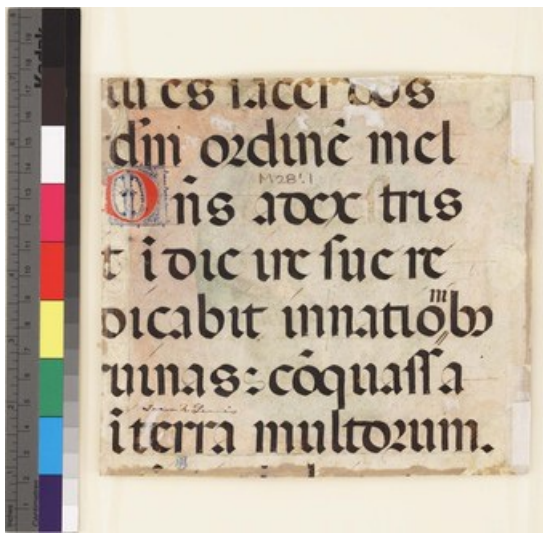 Kodak
tu es sacerdos
dm̄ ordinē mel
M28:1
Dn̄s a dex tris
t ī die ire sue re
dicabit innatiōb
uinas: cōquassa
ī terra multorum.